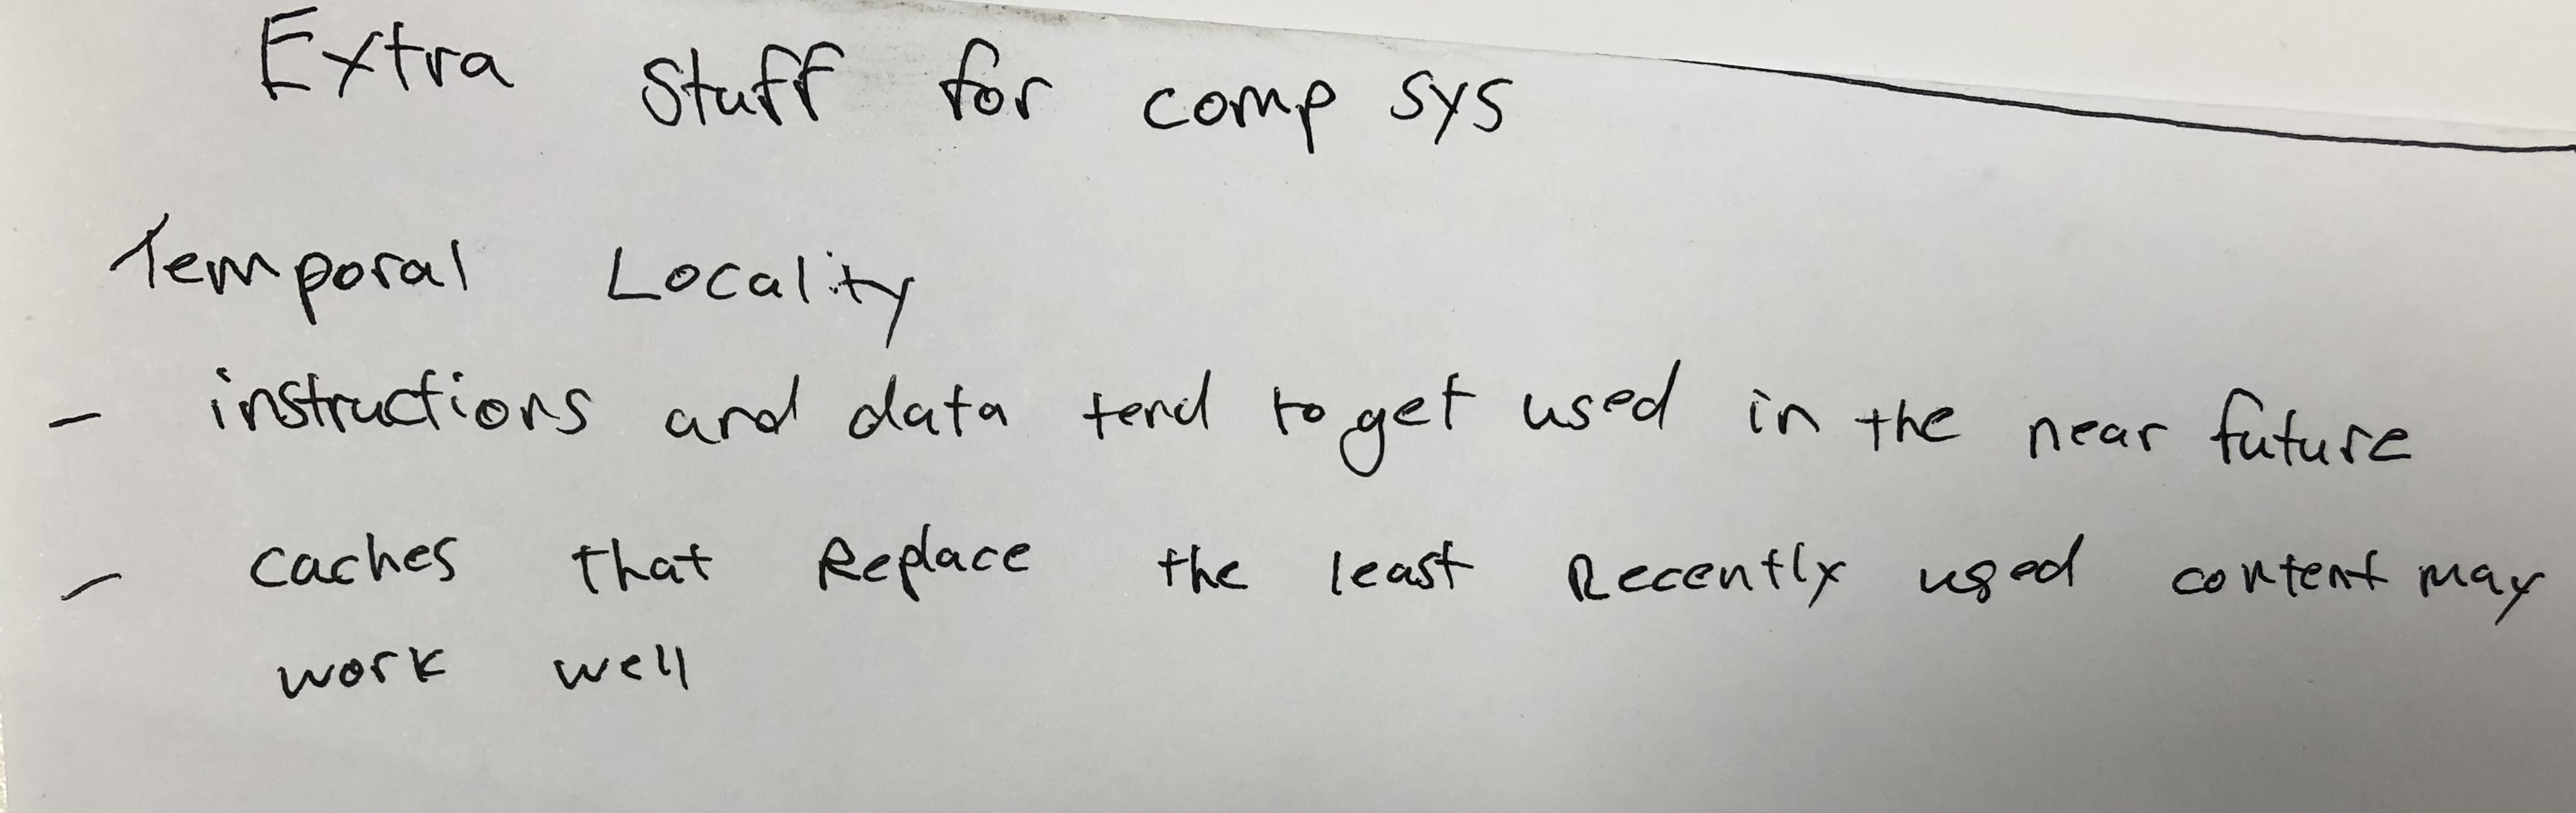 Extra Stuff for comp sys
Temporal Locality
- instructions and data tend to get used in the near future
- caches that Replace the least Recently used content may
work well